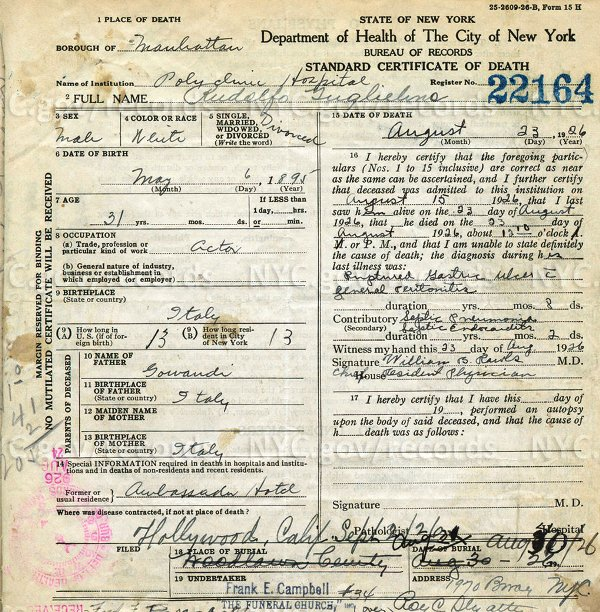 25-2609-26-B, Form 15 H
1 PLACE OF DEATH
STATE OF NEW YORK
Department of Health of The City of New York
BUREAU OF RECORDS
STANDARD CERTIFICATE OF DEATH
BOROUGH OF Manhattan
Name of Institution Polyclinic Hospital
Register No. 22164
2 FULL NAME Rudolfo Guglielmo
3 SEX
Male
4 COLOR OR RACE
White
5 SINGLE, MARRIED, WIDOWED, or DIVORCED (Write the word) Divorced
6 DATE OF BIRTH
May 6, 1895
(Month) (Day) (Year)
7 AGE
31 yrs. mos. ds.
If LESS than 1 day, hrs. or min.
8 OCCUPATION
(a) Trade, profession or particular kind of work Actor
(b) General nature of industry, business or establishment in which employed (or employer)
9 BIRTHPLACE
(State or country) Italy
(9A) How long in U.S. (if of foreign birth) 13
(9B) How long resident in City of New York 13
PARENTS OF DECEASED
10 NAME OF FATHER
11 BIRTHPLACE OF FATHER
(State or country) Italy
12 MAIDEN NAME OF MOTHER
13 BIRTHPLACE OF MOTHER
(State or country) Italy
14 Special INFORMATION required in deaths in hospitals and institutions and in deaths of non-residents and recent residents.
Former or usual residence Ambassador Hotel
Where was disease contracted, if not at place of death?
MARGIN RESERVED FOR BINDING
NO MUTILATED CERTIFICATE WILL BE RECEIVED
15 DATE OF DEATH
August 23, 1926
(Month) (Day) (Year)
16 I hereby certify that the foregoing particulars (Nos. 1 to 15 inclusive) are correct as near as the same can be ascertained, and I further certify that deceased was admitted to this institution on
August 15 1926, that I last
saw him alive on the 23 day of August
1926, that he died on the 23 day of
August 1926, about 12 10 o'clock A.
M. or P. M., and that I am unable to state definitely
the cause of death; the diagnosis during his
last illness was:
Ruptured Gastric Ulcer &
general Peritonitis
duration yrs. mos. 8 ds.
Contributory Septic Pneumonia
(Secondary) Septic Endocarditis
duration yrs. mos. 2 ds.
Witness my hand this 23 day of Aug 1926
Signature William B. M.D.
House Resident Physician
17 I hereby certify that I have this day of
19 , performed an autopsy
upon the body of said deceased, and that the cause of
h death was as follows:
Signature M. D.
Pathologist Hospital
Hollywood, Calif. Sept
FILED
18 PLACE OF BURIAL
Woodlawn
DATE OF BURIAL
Aug 30 26
19 UNDERTAKER
Frank E. Campbell
"THE FUNERAL CHURCH," Inc.
ADDRESS
1970 Bway NYC
NYC.gov/records